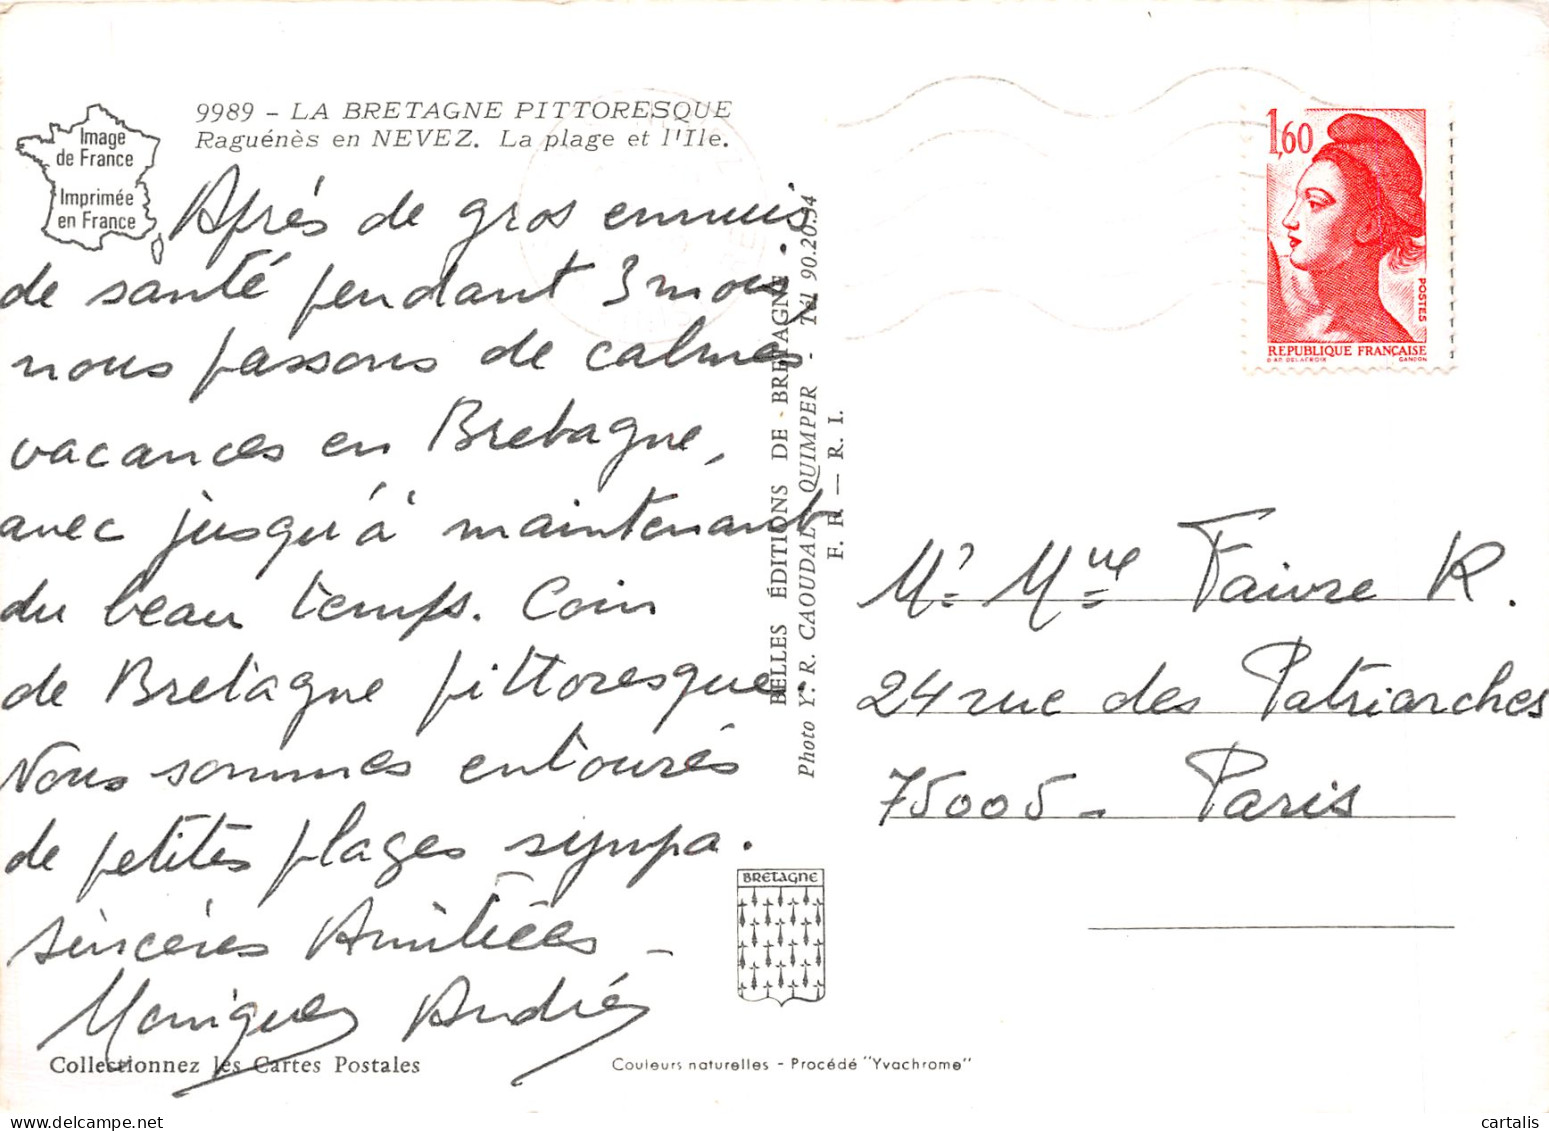 9989 - LA BRETAGNE PITTORESQUE
Raguénès en NEVEZ. La plage et l'Ile.
Image
de France
Imprimée
en France
Après de gros ennuis
de santé pendant 3 mois,
nous passons de calmes
vacances en Bretagne,
avec jusqu'à maintenant
du beau temps. Coin
de Bretagne pittoresque.
Nous sommes entourés
de petites plages sympa.
sincères Amitiées -
Monique André
Collectionnez les Cartes Postales
BELLES ÉDITIONS DE BRETAGNE.
Photo Y. R. CAOUDAL QUIMPER - Tél 90.20.54
F. F. — R. I.
BRETAGNE
Couleurs naturelles - Procédé "Yvachrome"
1,60
POSTES
REPUBLIQUE FRANÇAISE
D'AP. DELACROIX GANDON
Mr Mme Faivre R.
24 rue des Patriarches
75005 - Paris
cartalis